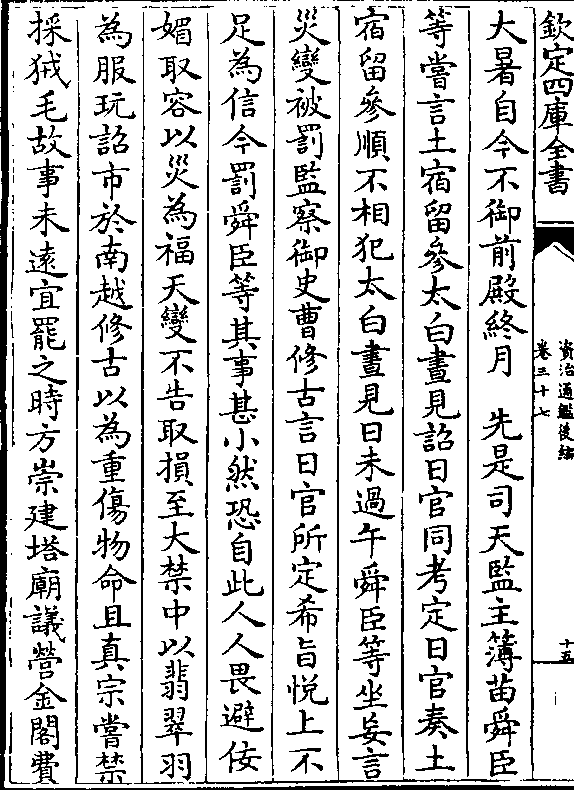 欽定四庫全書
資治通鑑後編
卷三十七
十五
大暑自今不御前殿終月　先是司天監主簿苗舜臣
等嘗言土宿留參太白晝見詔日官同考定日官奏土
宿留參順不相犯太白晝見日未過午舜臣等坐妄言
災變被罰監察御史曹修古言日官所定希旨悅上不
足為信今罰舜臣等其事甚小然恐自此人人畏避佞
媚取容以災為福天變不告取損至大禁中以翡翠羽
為服玩詔市於南越修古以為重傷物命且真宗嘗禁
採狨毛故事未遠宜罷之時方崇建塔廟議營金閣費